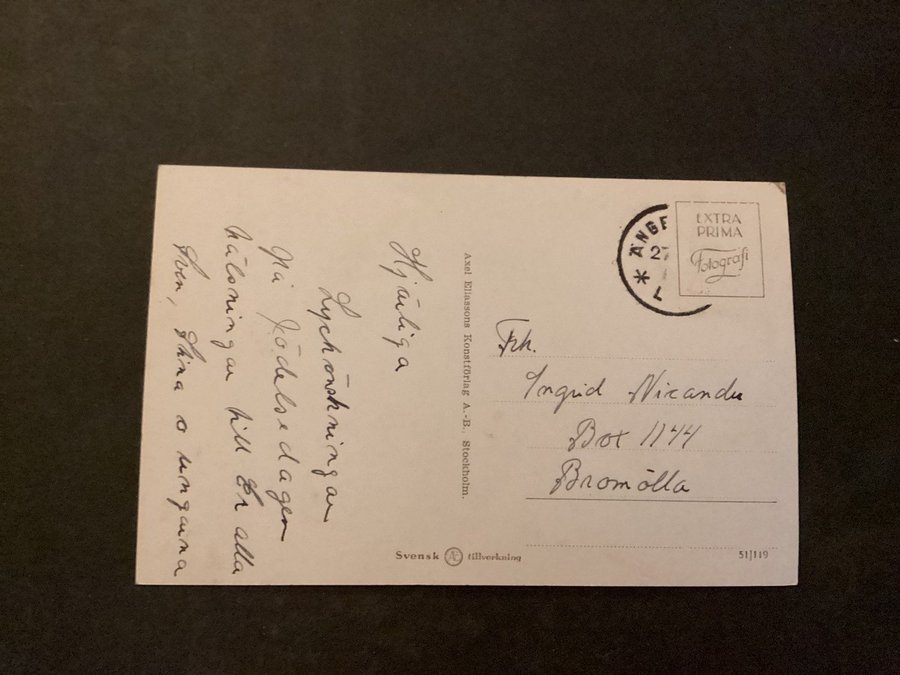 Hjärliga
Lyckönskningar
på Födelsedagen
Hälsningar till Er alla
Sven, Stina o ungarna
Axel Eliassons Konstförlag A.-B., Stockholm.
EXTRA
PRIMA
Fotografi
ÄNGE
27
* L
Frk.
Ingrid Nicander
Box 1144
Bromölla
Svensk Æ tillverkning
51/119